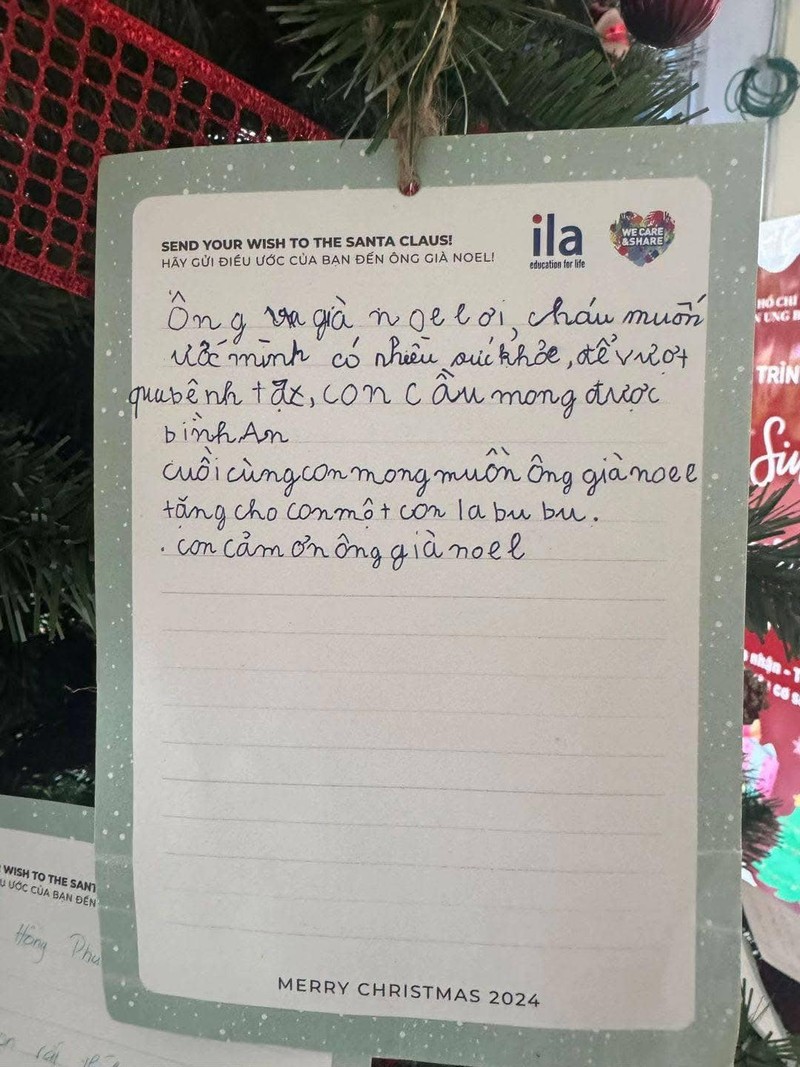 SEND YOUR WISH TO THE SANTA CLAUS!
HÃY GỬI ĐIỀU ƯỚC CỦA BẠN ĐẾN ÔNG GIÀ NOEL!
ila
education for life
WE CARE
&SHARE
Ông già noel ơi, cháu muốn
ước mình có nhiều sức khỏe, để vượt
qua bệnh tật, con cầu mong được
bình An
cuối cùng con mong muốn ông già noel
tặng cho con một con la bu bu.
. con cảm ơn ông già noel
MERRY CHRISTMAS 2024
WISH TO THE SANT
ƯỚC CỦA BẠN ĐẾN
Hồng Phu
HỒ CHÍ
UNG B
TRÌN
nhận - T